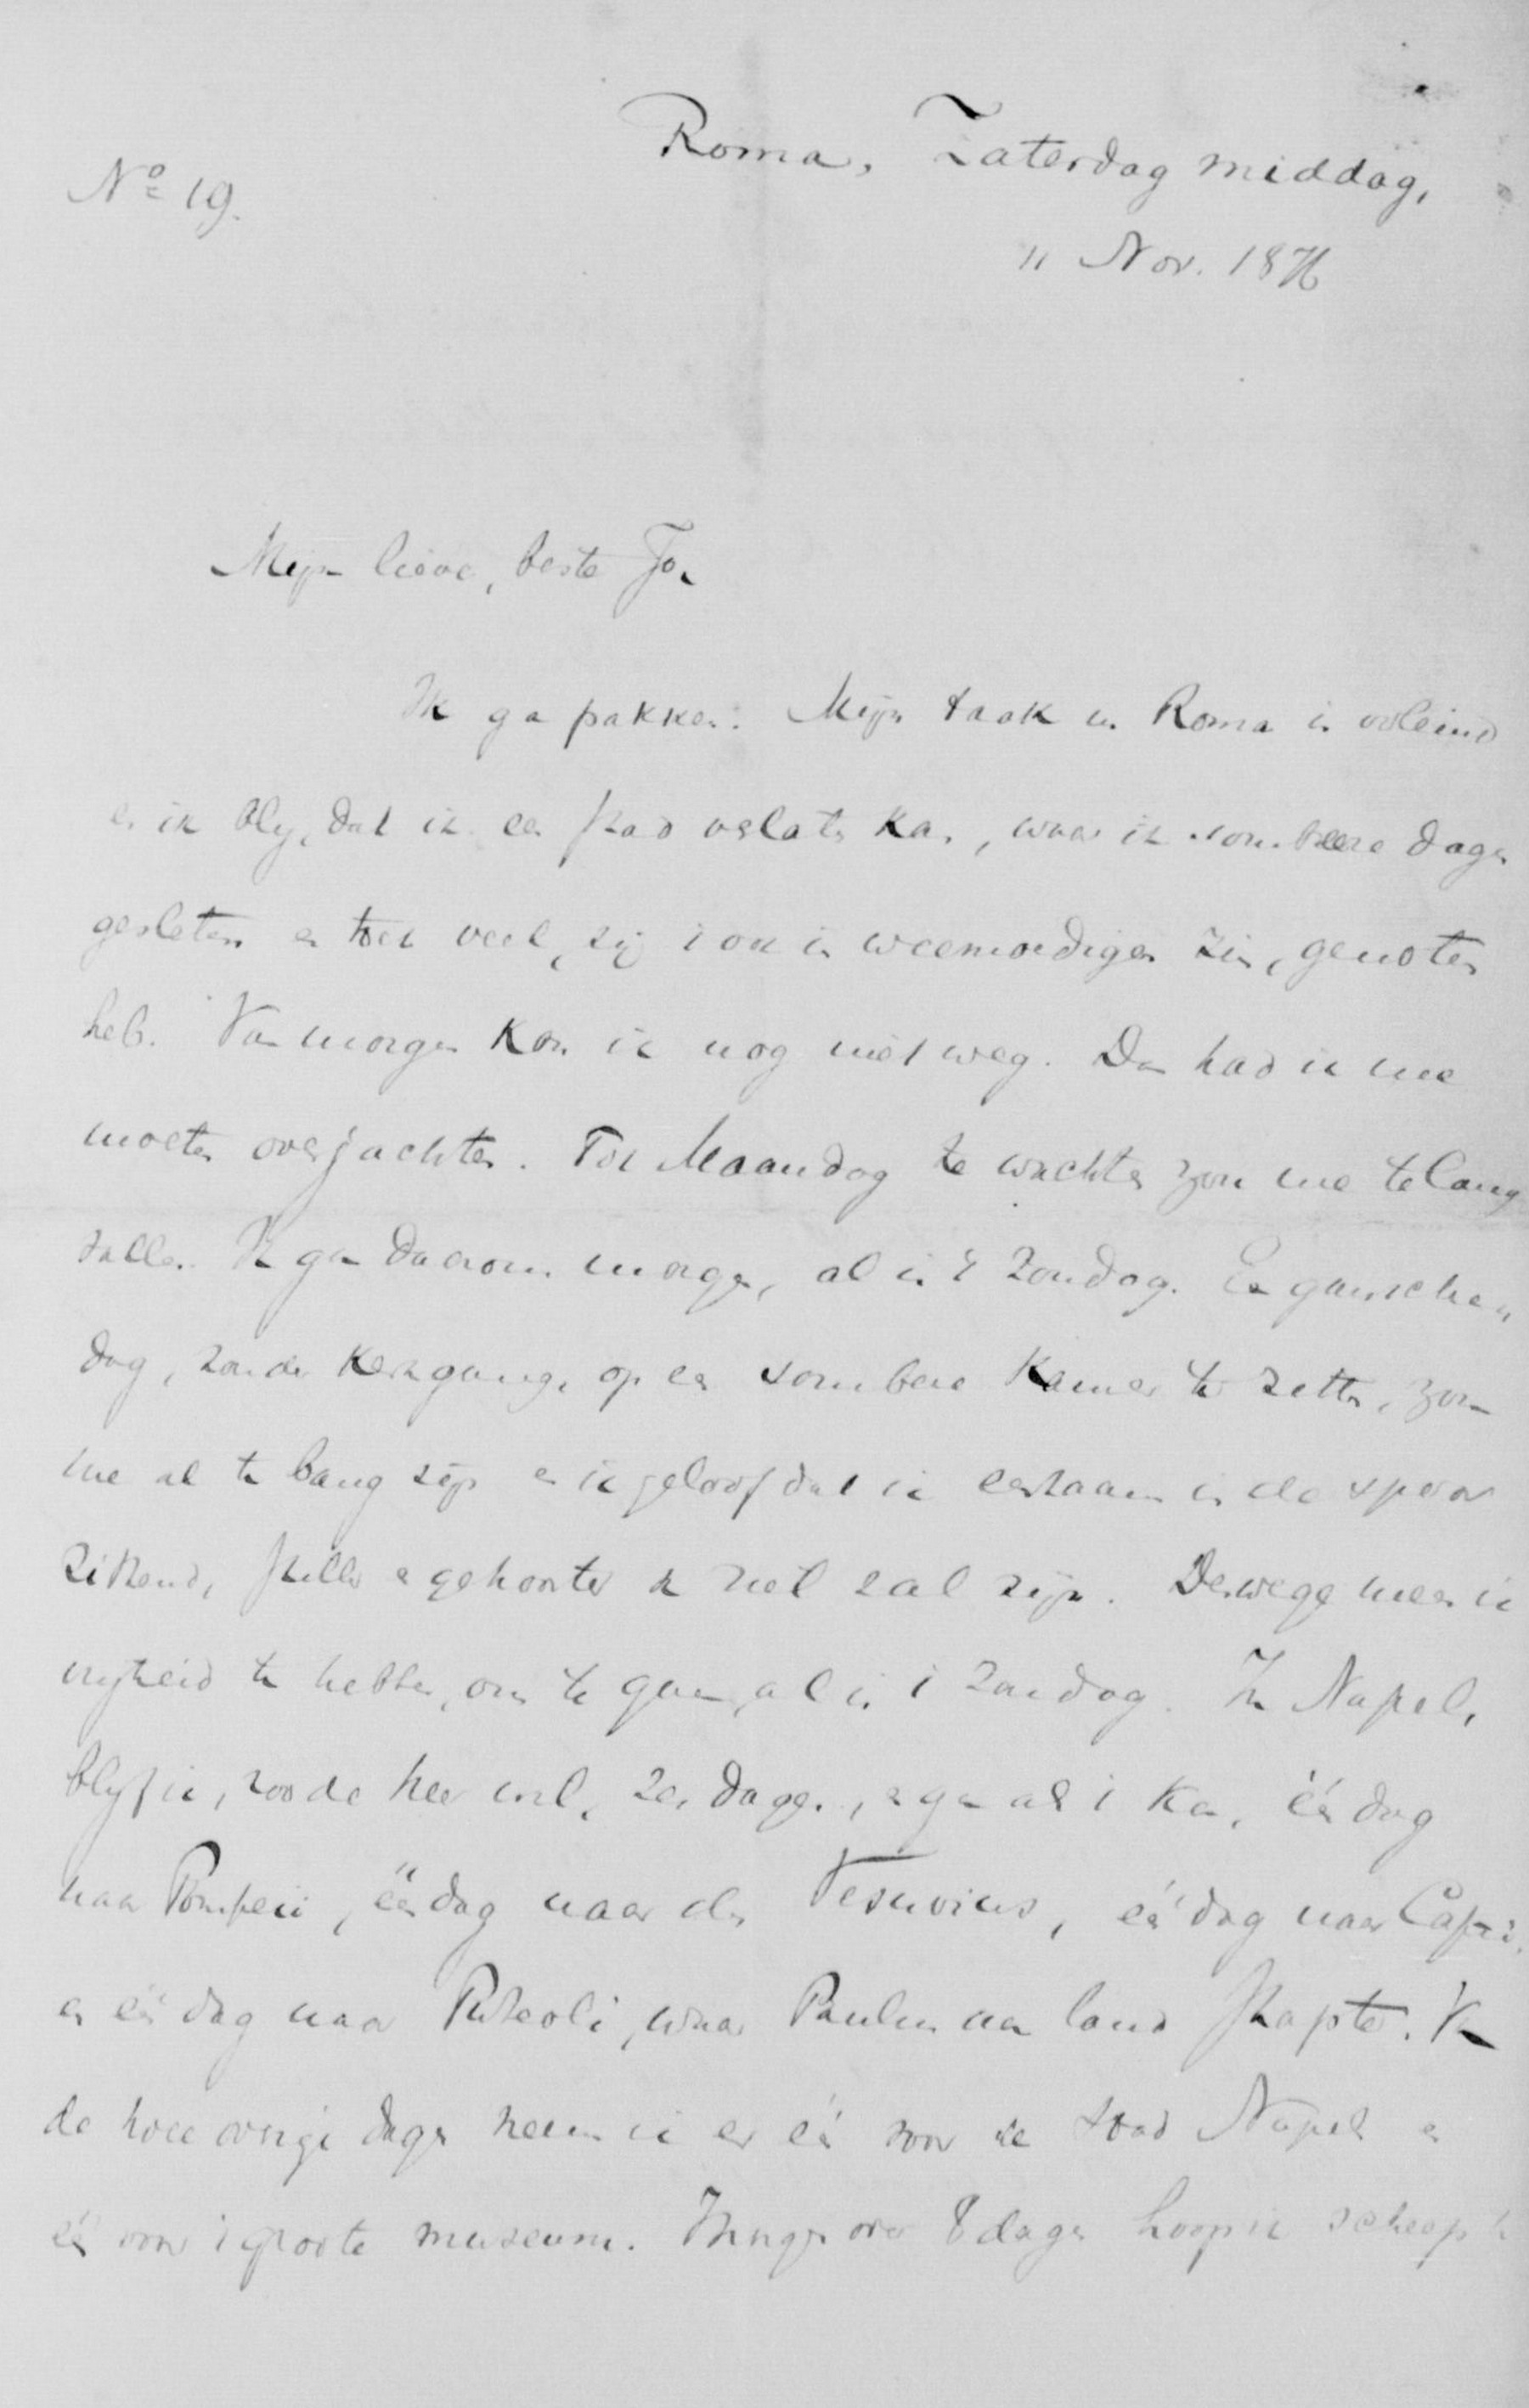 Roma, Zaterdag middag,
No 19.
11 Nov. 1876
Mijn lieve, beste Jo.
Ik ga pakken. Mijn taak in Roma is voleind
en ik bly, dat ik een stad verlaten kan, waar ik sombere dagen
gesleten en toch veel, zij 't ook in weemoedigen zin, genoten
heb. Van morgen kon ik nog niet weg. Dan had ik me
moeten overjachten. Tot Maandag te wachten zou me te lang
vallen. Ik ga daarom morgen, al is 't Zondag. Een ganschen
dag, zonder kerkgang, op een sombere kamer te zitten, zou
me al te bang zijn en ik geloof dat ik eenzaam in de spoor
zittend, stiller en zal zijn. Deswege meen ik
vryheid te hebben, om te gaan, al is 't Zondag. In Napels
blyf ik, zoo de Heer wil, zes dagen, en ga als i kan, één dag
naar Pompeii, één dag naar den Vesuvius, één dag naar Capri,
en één dag naar Puteoli, waar Paulus aan land stapte. Van
de twee overige dagen neem ik er één voor de stad Napels en
één voor 't groote museum. Morgen over 8 dagen hoop ik scheep te